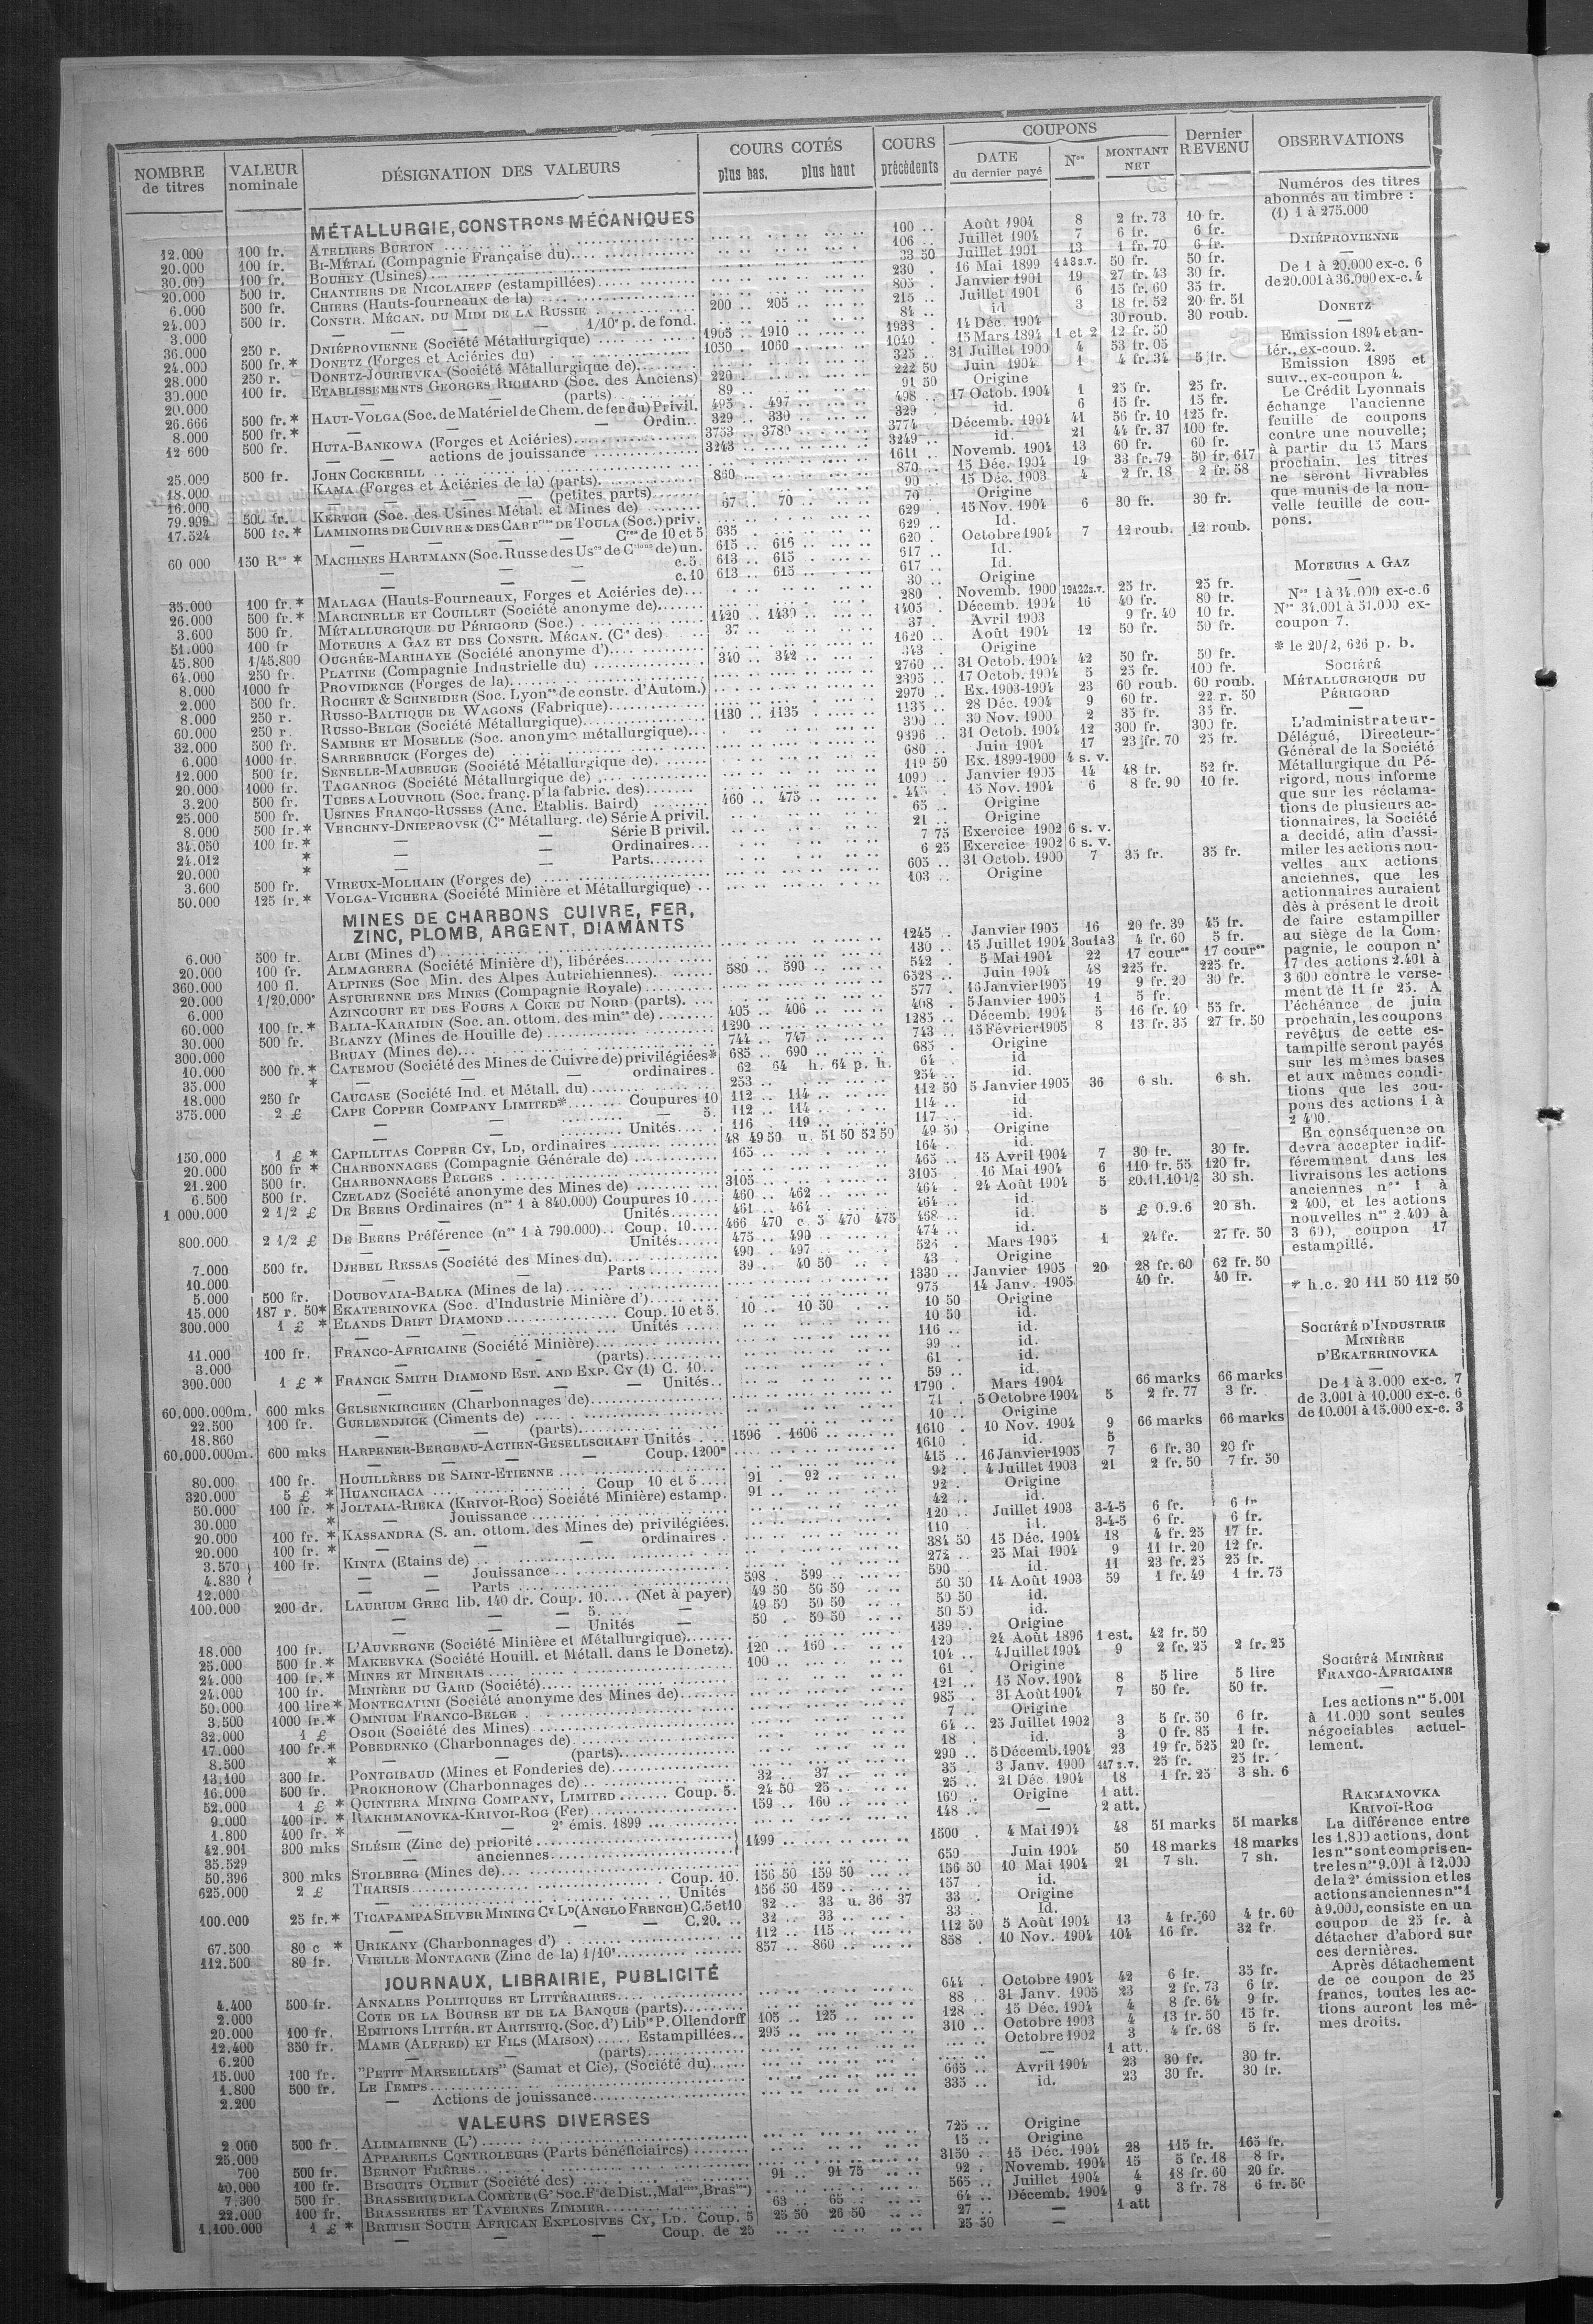 NOMBRE de titres | VALEUR nominale | DÉSIGNATION DES VALEURS | COURS COTÉS plus bas. plus haut | COURS précédents | COUPONS DATE du dernier payé | Nos | MONTANT NET | Dernier REVENU | OBSERVATIONS
MÉTALLURGIE, CONSTRons MÉCANIQUES
12.000 100 fr. ATELIERS BURTON 100 .. Août 1904 8 2 fr. 73 10 fr.
20.000 100 fr. BI-MÉTAL (Compagnie Française du) 106 .. Juillet 1904 7 6 fr. 6 fr.
30.000 100 fr. BOUHEY (Usines) 33 50 Juillet 1901 13 1 fr. 70 6 fr.
20.000 500 fr. CHANTIERS DE NICOLAIEFF (estampillées) 230 . 16 Mai 1899 50 fr. 50 fr.
6.000 500 fr. CHIERS (Hauts-fourneaux de la) 805 . Janvier 1901 19 27 fr. 43 30 fr.
24.000 500 fr. CONSTR. MÉCAN. DU MIDI DE LA RUSSIE 200 .. 205 .. 215 .. Juillet 1901 6 15 fr. 60 35 fr.
3.000 — — — 1/10e p. de fond. 84 .. id 3 18 fr. 52 20 fr. 51
36.000 250 r. DNIÉPROVIENNE (Société Métallurgique) 1905 .. 1910 .. 1938 . 14 Déc. 1904 30 roub. 30 roub.
24.000 500 fr. * DONETZ (Forges et Aciéries du) 1050 . 1060 .. 1040 . 15 Mars 1894 1 et 2 12 fr. 50
28.000 250 r. DONETZ-JOURIEVKA (Société Métallurgique de) 325 . 31 Juillet 1900 4 53 fr. 05
30.000 100 fr. ETABLISSEMENTS GEORGES RICHARD (Soc. des Anciens) 220 .. 222 50 Juin 1904 1 4 fr. 34 5 fr.
20.000 — — (parts) 89 .. 91 50 Origine
26.666 500 fr. * HAUT-VOLGA (Soc. de Matériel de Chem. de fer du) Privil. 495 .. 497 .. 498 .. 17 Octob. 1904 1 25 fr. 25 fr.
8.000 500 fr. * — — Ordin. 329 .. 330 .. 329 . id. 6 15 fr. 15 fr.
12 600 500 fr. HUTA-BANKOWA (Forges et Aciéries) 3753 .. 3780 .. 3774 Décemb. 1904 41 56 fr. 10 125 fr.
— — actions de jouissance 3243 .. 3249 .. id. 21 44 fr. 37 100 fr.
25.000 500 fr. JOHN COCKERILL 1611 .. Novemb. 1904 13 60 fr. 60 fr.
18.000 KAMA (Forges et Aciéries de la) (parts) 860 .. 870 .. 15 Déc. 1904 19 33 fr. 79 50 fr. 617
16.000 — — (petites parts) 90 .. 15 Déc. 1903 4 2 fr. 18 2 fr. 58
79.999 500 fr. KERTCH (Soc. des Usines Métal. et Mines de) 67 .. 70 .. 70 .. Origine
17.524 500 fr. * LAMINOIRS DE CUIVRE & DES CARTries DE TOULA (Soc.) priv. 629 . 15 Nov. 1904 6 30 fr. 30 fr.
— — — Cres de 10 et 5 635 .. 629 .. Id.
60 000 150 Res * MACHINES HARTMANN (Soc. Russe des Uses de Ctions de) un. 615 .. 616 .. 620 . Octobre 1904 7 12 roub. 12 roub.
— — — c. 5 613 .. 615 .. 617 .. Id.
— — — c. 10 613 .. 615 .. 617 .. Id.
35.000 100 fr. * MALAGA (Hauts-Fourneaux, Forges et Aciéries de) 30 .. Origine
26.000 500 fr. * MARCINELLE ET COUILLET (Société anonyme de) 280 . Novemb. 1900 25 fr. 25 fr.
3.600 500 fr. MÉTALLURGIQUE DU PÉRIGORD (Soc.) 1420 .. 1430 .. 1405 . Décemb. 1904 16 40 fr. 80 fr.
51.000 100 fr MOTEURS A GAZ ET DES CONSTR. MÉCAN. (Cie des) 37 .. 37 . Avril 1903 9 fr. 40 10 fr.
45.800 1/45.800 OUGRÉE-MARIHAYE (Société anonyme d') 1620 .. Août 1904 12 50 fr. 50 fr.
64.000 250 fr. PLATINE (Compagnie Industrielle du) 340 .. 342 .. 343 . Origine
8.000 1000 fr PROVIDENCE (Forges de la) 2760 .. 31 Octob. 1904 42 50 fr. 50 fr.
2.000 500 fr. ROCHET & SCHNEIDER (Soc. Lyonse de constr. d'Autom.) 2395 .. 17 Octob. 1904 5 25 fr. 100 fr.
8.000 250 r. RUSSO-BALTIQUE DE WAGONS (Fabrique) 2970 .. Ex. 1903-1904 23 60 roub. 60 roub.
60.000 250 r. RUSSO-BELGE (Société Métallurgique) 1130 .. 1135 .. 1135 . 28 Déc. 1904 9 60 fr. 22 r. 50
32.000 500 fr. SAMBRE ET MOSELLE (Soc. anonyme métallurgique) 390 .. 30 Nov. 1900 2 35 fr. 35 fr.
6.000 1000 fr. SARREBRUCK (Forges de) 9396 .. 31 Octob. 1904 12 300 fr. 300 fr.
12.000 500 fr. SENELLE-MAUBEUGE (Société Métallurgique de) 680 .. Juin 1904 17 23 fr. 70 25 fr.
20.000 1000 fr. TAGANROG (Société Métallurgique de) 119 50 Ex. 1899-1900 4 s. v.
3.200 500 fr. TUBES A LOUVROIL (Soc. franç. pr la fabric. des) 1090 .. Janvier 1905 14 48 fr. 52 fr.
25.000 500 fr. USINES FRANCO-RUSSES (Anc. Etablis. Baird) 15 Nov. 1904 6 8 fr. 90 10 fr.
8.000 500 fr. * VERCHNY-DNIEPROVSK (Cie Métallurg. de) Série A privil. 460 .. 475 .. 65 .. Origine
34.050 100 fr. * — Série B privil. 21 .. Origine
24.012 * — — Ordinaires 7 75 Exercice 1902 6 s. v.
20.000 * — — Parts 6 25 Exercice 1902 6 s. v.
3.600 500 fr. VIREUX-MOLHAIN (Forges de) 605 .. 31 Octob. 1900 7 35 fr. 35 fr.
50.000 125 fr. * VOLGA-VICHERA (Société Minière et Métallurgique) 103 .. Origine
MINES DE CHARBONS CUIVRE, FER,
ZINC, PLOMB, ARGENT, DIAMANTS
6.000 500 fr. ALBI (Mines d') 1245 . Janvier 1905 16 20 fr. 39 45 fr.
20.000 100 fr. ALMAGRERA (Société Minière d'), libérées 130 .. 15 Juillet 1904 3 ou 1 à 3 4 fr. 60 5 fr.
360.000 100 fl. ALPINES (Soc Min. des Alpes Autrichiennes) 542 . 5 Mai 1904 22 17 cournes 17 cournes
20.000 1/20.000e ASTURIENNE DES MINES (Compagnie Royale) 580 .. 590 .. 6528 .. Juin 1904 48 225 fr. 225 fr.
6.000 AZINCOURT ET DES FOURS A COKE DU NORD (parts) 577 . 16 Janvier 1905 19 9 fr. 20 30 fr.
60.000 100 fr. * BALIA-KARAIDIN (Soc. an. ottom. des mines de) 405 .. 406 .. 408 . 5 Janvier 1905 1 5 fr.
30.000 500 fr. BLANZY (Mines de Houille de) 1290 .. 1285 .. Décemb. 1904 5 16 fr. 40 55 fr.
300.000 BRUAY (Mines de) 744 .. 747 .. 743 .. 15 Février 1905 8 13 fr. 35 27 fr. 50
10.000 500 fr. * CATEMOU (Société des Mines de Cuivre de) privilégiées* 685 .. 690 .. 685 . Origine
35.000 * — — ordinaires . 62 64 h. 64 p. h. 64 . id
18.000 250 fr CAUCASE (Société Ind. et Métall. du) 253 .. 254 .. id.
375.000 2 £ CAPE COPPER COMPANY LIMITED* Coupures 10 112 .. 114 .. 112 50 5 Janvier 1905 36 6 sh. 6 sh.
— — — 5. 112 .. 114 .. 114 .. id
— — Unités 116 . 119 .. 117 .. id.
150.000 1 £ * CAPILLITAS COPPER CY, LD, ordinaires 48 49 50 u. 51 50 52 50 49 50 Origine
20.000 500 fr * CHARBONNAGES (Compagnie Générale de) 165 .. 164 .. id.
21.200 500 fr. CHARBONNAGES BELGES 465 .. 15 Avril 1904 7 30 fr. 30 fr.
6.500 500 fr. CZELADZ (Société anonyme des Mines de) 3105 .. 3105 . 16 Mai 1904 6 110 fr. 55 120 fr.
1 000.000 2 1/2 £ DE BEERS Ordinaires (nos 1 à 840.000) Coupures 10 460 .. 462 .. 464 . 24 Août 1904 5 £0.11.10 1/2 30 sh.
— — Unités 461 .. 464 .. 464 . id.
800.000 2 1/2 £ DE BEERS Préférence (nos 1 à 790.000) Coup. 10 466 470 c. 5 470 475 468 .. id. 5 £ 0.9.6 20 sh.
— — Unités 475 .. 490 .. 474 .. id.
7.000 500 fr. DJEBEL RESSAS (Société des Mines du) 490 . 497 .. 526 . Mars 1905 1 24 fr. 27 fr. 50
10.000 — — Parts 39 .. 40 50 43 . Origine
5.000 500 fr. DOUBOVAIA-BALKA (Mines de la) 1330 .. Janvier 1905 20 28 fr. 60 62 fr. 50
15.000 187 r. 50* EKATERINOVKA (Soc. d'Industrie Minière d') 975 . 14 Janv. 1905 40 fr. 40 fr.
300.000 1 £ * ELANDS DRIFT DIAMOND Coup. 10 et 5. 10 .. 10 50 10 50 Origine
— — — Unités 10 50 id.
11.000 100 fr. FRANCO-AFRICAINE (Société Minière) 116 .. id.
3.000 — — (parts) 99 .. id.
300.000 1 £ * FRANCK SMITH DIAMOND EST. AND EXP. CY (1) C. 10 61 . id.
— — — Unités 59 .. id.
60.000.000m. 600 mks GELSENKIRCHEN (Charbonnages de) 1790 . Mars 1904 66 marks 66 marks
22.500 100 fr. GUELENDJICK (Ciments de) 71 . 5 Octobre 1904 5 2 fr. 77 3 fr.
18.860 — — (parts) 10 .. Origine
60.000.000m. 600 mks HARPENER-BERGBAU-ACTIEN-GESELLSCHAFT Unités 1596 . 1606 .. 1610 . 10 Nov. 1904 9 66 marks 66 marks
— — — Coup. 1200m 1610 . id. 5
80.000 100 fr. HOUILLÈRES DE SAINT-ETIENNE 415 .. 16 Janvier 1905 7 6 fr. 30 20 fr
320.000 5 £ * HUANCHACA Coup 10 et 5 91 . 92 .. 92 . 4 Juillet 1903 21 2 fr. 50 7 fr. 50
50.000 100 fr. * JOLTAIA-RIEKA (KRIVOI-ROG) Société Minière) estamp. 91 .. 92 .. Origine
30.000 * — Jouissance 42 .. id.
20.000 100 fr. * KASSANDRA (S. an. ottom. des Mines de) privilégiées. 120 .. Juillet 1903 3-4-5 6 fr. 6 fr
20.000 100 fr. * — — ordinaires . 110 .. id. 3-4-5 6 fr. 6 fr.
3.570 100 fr. KINTA (Etains de) 384 50 15 Déc. 1904 18 4 fr. 25 17 fr.
4.830 — — Jouissance 272 .. 25 Mai 1904 9 11 fr. 20 12 fr.
12.000 — — Parts 598 . 599 .. 590 .. id. 11 23 fr. 25 25 fr.
100.000 200 dr. LAURIUM GREC lib. 140 dr. Coup. 10 (Net à payer) 49 50 50 50 50 50 14 Août 1903 59 1 fr. 49 1 fr. 75
— — — 5. 49 50 50 50 50 50 id.
— — Unités — 50 . 50 50 50 50 id.
18.000 100 fr. L'AUVERGNE (Société Minière et Métallurgique) 139 . Origine
25.000 500 fr. * MAKEEVKA (Société Houill. et Métall. dans le Donetz). 120 .. 160 .. 120 .. 24 Août 1896 1 est. 42 fr. 50
24.000 100 fr. * MINES ET MINERAIS 100 .. 104 .. 4 Juillet 1904 9 2 fr. 25 2 fr. 25
24.000 100 fr. MINIÈRE DU GARD (Société) 61 . Origine
50.000 100 lire * MONTECATINI (Société anonyme des Mines de) 121 .. 15 Nov. 1904 8 5 lire 5 lire
3.500 1000 fr. * OMNIUM FRANCO-BELGE 985 . 31 Août 1904 7 50 fr. 50 fr.
32.000 1 £ OSOR (Société des Mines) 7 .. Origine
17.000 100 fr. * POBEDENKO (Charbonnages de) 64 .. 25 Juillet 1902 3 5 fr. 50 6 fr.
8.500 * — — (parts) 18 . id. 3 0 fr. 85 1 fr.
13.100 300 fr. PONTGIBAUD (Mines et Fonderies de) 290 .. 5 Décemb. 1904 23 19 fr. 525 20 fr.
16.000 500 fr. PROKHOROW (Charbonnages de) 32 .. 37 .. 35 .. 3 Janv. 1900 25 fr. 25 fr.
52.000 1 £ * QUINTERA MINING COMPANY, LIMITED Coup. 5. 24 50 25 .. 25 .. 21 Déc 1904 18 1 fr. 25 3 sh. 6
9.000 400 fr. * RAKHMANOVKA-KRIVOI-ROG (Fer) 159 .. 160 .. 160 .. Origine 1 att.
1.800 400 fr. * — — 2e émis. 1899 148 .. — 2 att.
42.901 300 mks SILÉSIE (Zinc de) priorité 1499 .. 1500 . 4 Mai 1904 48 51 marks 51 marks
35.529 — anciennes
50.396 300 mks STOLBERG (Mines de) 650 . Juin 1904 50 18 marks 18 marks
625.000 2 £ THARSIS Coup. 10. 156 50 159 50 156 50 10 Mai 1904 21 7 sh. 7 sh.
— Unités 156 50 159 .. 157 . id.
100.000 25 fr. * TICAPAMPA SILVER MINING CY LD (ANGLO FRENCH) C. 5 et 10 32 .. 33 u. 36 37 33 . Origine
— — C. 20. 32 .. 33 .. 33 .. Id.
67.500 80 c * URIKANY (Charbonnages d') 112 .. 115 .. 112 50 5 Août 1904 13 4 fr. 60 4 fr. 60
112.500 80 fr. VIEILLE MONTAGNE (Zinc de la) 1/10e 857 .. 860 .. 858 . 10 Nov. 1904 104 16 fr. 32 fr.
JOURNAUX, LIBRAIRIE, PUBLICITÉ
4.400 500 fr. ANNALES POLITIQUES ET LITTÉRAIRES 644 . Octobre 1904 42 6 fr. 35 fr.
2.000 COTE DE LA BOURSE ET DE LA BANQUE (parts) 88 .. 31 Janv. 1905 23 2 fr. 73 6 fr.
20.000 100 fr. EDITIONS LITTÉR. ET ARTISTIQ. (Soc. d') Librie P. Ollendorff 105 .. 125 .. 128 .. 15 Déc. 1904 4 8 fr. 64 9 fr.
12.400 350 fr. MAME (ALFRED) ET FILS (MAISON) Estampillées 295 .. 310 .. Octobre 1903 4 13 fr. 50 15 fr.
6.200 — — (parts) Octobre 1902 3 4 fr. 68 5 fr.
15.000 100 fr. "PETIT MARSEILLAIS" (Samat et Cie), (Société du) — 1 att.
1.800 500 fr. LE TEMPS 665 .. Avril 1904 23 30 fr. 30 fr.
2.200 — Actions de jouissance 335 .. id. 23 30 fr. 30 fr.
VALEURS DIVERSES
2.000 500 fr. ALIMAIENNE (L') 725 .. Origine
25.000 APPAREILS CONTROLEURS (Parts bénéficiaires) 15 .. Origine
700 500 fr. BERNOT FRÈRES 3150 .. 15 Déc. 1904 28 115 fr. 165 fr.
40.000 100 fr. BISCUITS OLIBET (Société des) 91 .. 91 75 92 . Novemb. 1904 15 5 fr. 18 8 fr.
7.300 500 fr. BRASSERIE DE LA COMÈTE (Ge Soc. Fe de Dist., Malries, Brasies) 565 .. Juillet 1904 4 18 fr. 60 20 fr.
22.000 100 fr. BRASSERIES ET TAVERNES ZIMMER 63 .. 65 .. 64 .. Décemb. 1904 9 3 fr. 78 6 fr. 50
1.100.000 1 £ * BRITISH SOUTH AFRICAN EXPLOSIVES CY, LD. Coup. 5 25 50 26 50 27 . — 1 att
— — — Coup. de 25 25 50 —
Numéros des titres
abonnés au timbre :
(1) 1 à 275.000
DNIÉPROVIENNE
De 1 à 20.000 ex-c. 6
de 20.001 à 36.000 ex-c. 4
DONETZ
Emission 1894 et an-
tér., ex-coup. 2.
Emission 1895 et
suiv., ex-coupon 4.
Le Crédit Lyonnais
échange l'ancienne
feuille de coupons
contre une nouvelle;
à partir du 15 Mars
prochain, les titres
ne seront livrables
que munis de la nou-
velle feuille de cou-
pons.
MOTEURS A GAZ
Nos 1 à 34.000 ex-c. 6
Nos 34.001 à 51.000 ex-
coupon 7.
* le 20/2, 626 p. b.
SOCIÉTÉ
MÉTALLURGIQUE DU
PÉRIGORD
L'administrateur-
Délégué, Directeur-
Général de la Société
Métallurgique du Pé-
rigord, nous informe
que sur les réclama-
tions de plusieurs ac-
tionnaires, la Société
a decidé, afin d'assi-
miler les actions nou-
velles aux actions
anciennes, que les
actionnaires auraient
dès à présent le droit
de faire estampiller
au siège de la Com-
pagnie, le coupon no
17 des actions 2.401 à
3 600 contre le verse-
ment de 11 fr 25. A
l'échéance de juin
prochain, les coupons
revêtus de cette es-
tampille seront payés
sur les mêmes bases
et aux mêmes condi-
tions que les cou-
pons des actions 1 à
2 400.
En conséquence on
devra accepter indif-
féremment dans les
livraisons les actions
anciennes nos 1 à
2 400, et les actions
nouvelles nos 2.400 à
3 600, coupon 17
estampillé.
* h.c. 20 111 50 112 50
SOCIÉTÉ D'INDUSTRIE
MINIÈRE
D'EKATERINOVKA
De 1 à 3.000 ex-c. 7
de 3.001 à 10.000 ex-c. 6
de 10.001 à 15.000 ex-c. 3
SOCIÉTÉ MINIÈRE
FRANCO-AFRICAINE
Les actions nos 5.001
à 11.000 sont seules
négociables actuel-
lement.
RAKMANOVKA
KRIVOÏ-ROG
La différence entre
les 1.800 actions, dont
les nos sont compris en-
tre les nos 9.001 à 12.000
de la 2e émission et les
actions anciennes nos 1
à 9.000, consiste en un
coupon de 25 fr. à
détacher d'abord sur
ces dernières.
Après détachement
de ce coupon de 25
francs, toutes les ac-
tions auront les mê-
mes droits.